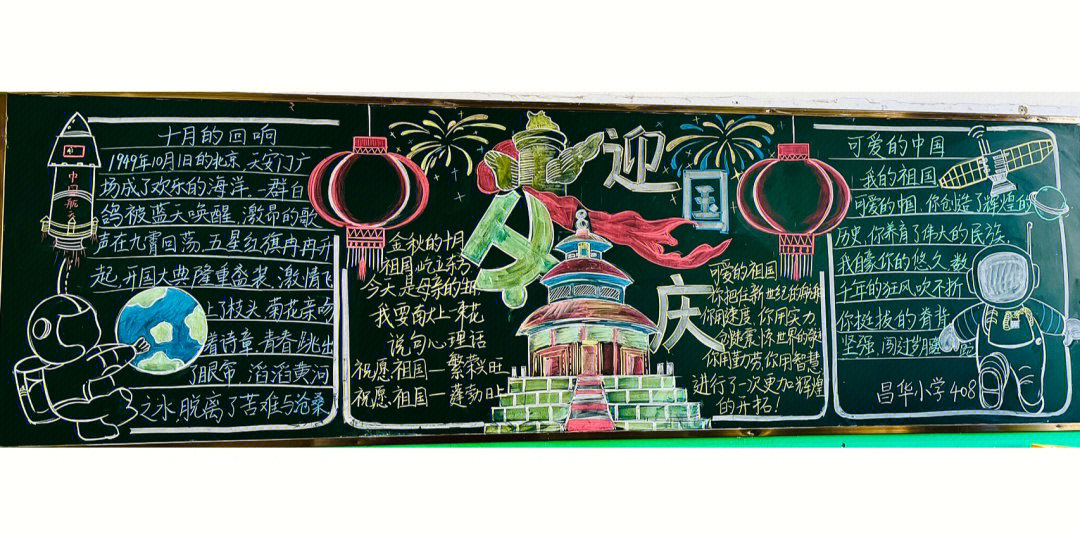 中国航天
十月的回响
1949年10月1日的北京,天安门广
场成了欢乐的海洋.一群白
鸽被蓝天唤醒,激昂的歌
声在九霄回荡.五星红旗冉冉升
起.开国大典隆重盛装,激情飞
上了枝头.菊花亲吻
着诗章.青春.跳出
了眼帘,滔滔黄河
之水.脱离了苦难与沧桑
金秋的十月
祖国屹立东方
今天是母亲的生日
我要献上一束花
说句心理话
祝愿祖国一繁荣兴旺
祝愿祖国一蓬勃日上
迎
国
庆
可爱的祖国
你把住新世纪的
你用速度,你用实力
震惊世界的
你用勤劳,你用智慧
进行了一次更加辉煌
的开拓!
可爱的中国
我的祖国
可爱的中国,你创造了辉煌的
历史,你养育了伟大的民族.
我自豪你的悠久.数
千年的狂风吹不折
你挺拔的脊背
坚强,闯过岁月
昌华小学408